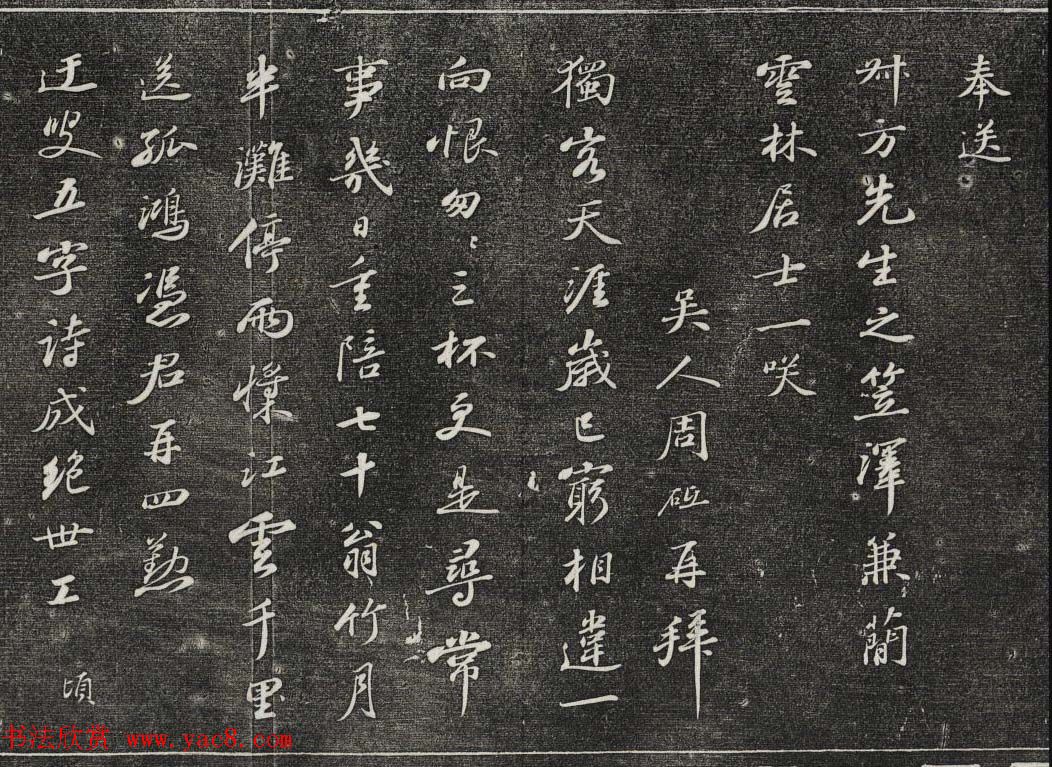 奉送
叔方先生之笠澤兼簡
雲林居士一咲
吳人周砥再拜
獨客天涯歲已窮相違一
向恨匆〻三杯更是尋常
事幾日重陪七十翁竹月
半灘停雨槳江雲千里
送孤鴻憑君再四懃
迂叟五字詩成絶世工
頃
书法欣赏 www.yac8.com